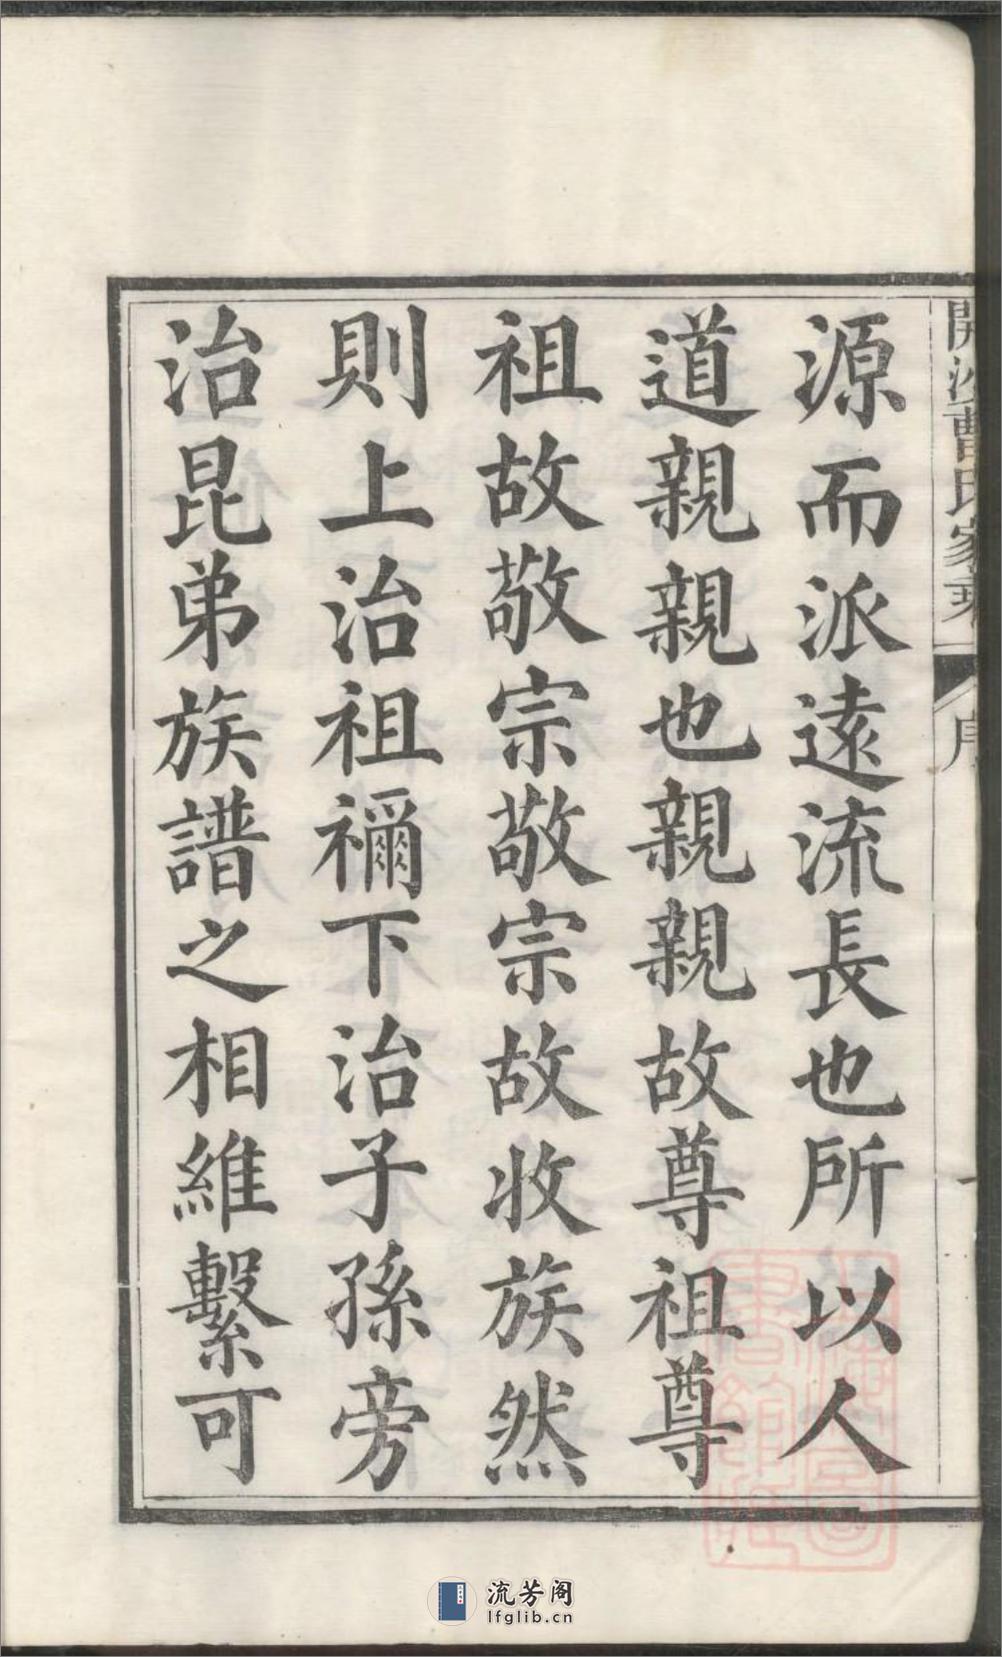 開沙曹氏家乘
序
源而派遠流長也所以人
道親親也親親故尊祖尊
祖故敬宗敬宗故收族然
則上治祖禰下治子孫旁
治昆弟族譜之相維繫可
流芳阁
lfglib.cn